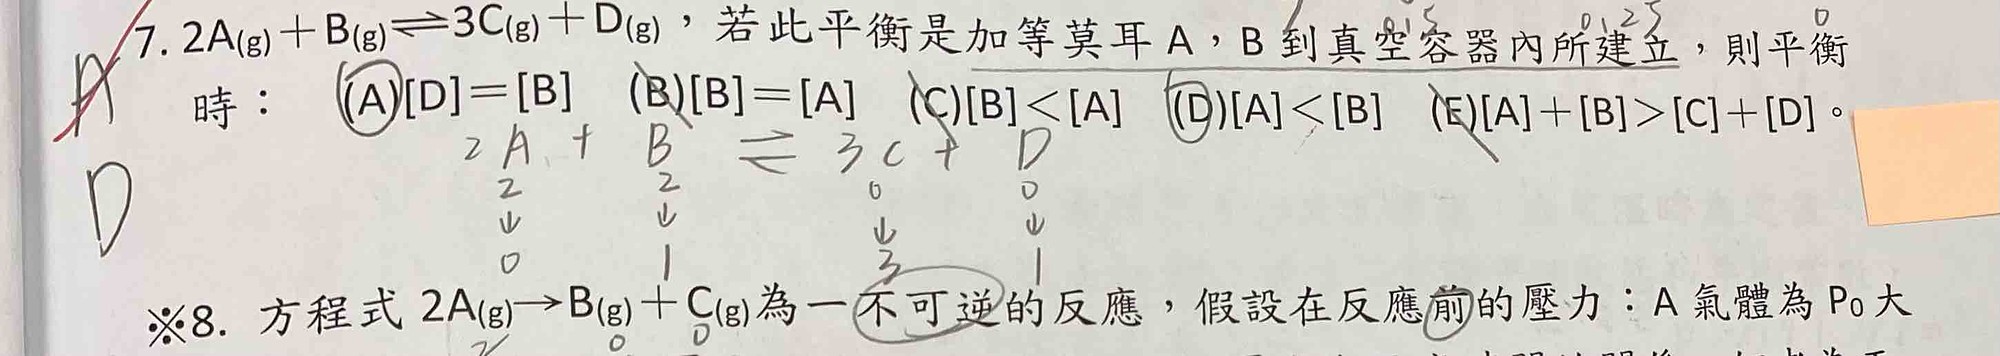 7. 2A(g)+B(g)⇌3C(g)+D(g),若此平衡是加等莫耳 A,B 到真空容器內所建立,則平衡
A
時: (A)[D]=[B] (B)[B]=[A] (C)[B]<[A] (D)[A]<[B] (E)[A]+[B]>[C]+[D]。
2A + B ⇌ 3C + D
D
2 2 0 0
↓ ↓ ↓ ↓
0 1 3 1
※8. 方程式 2A(g)→B(g)+C(g)為一不可逆的反應,假設在反應前的壓力:A 氣體為 P0 大
0 0